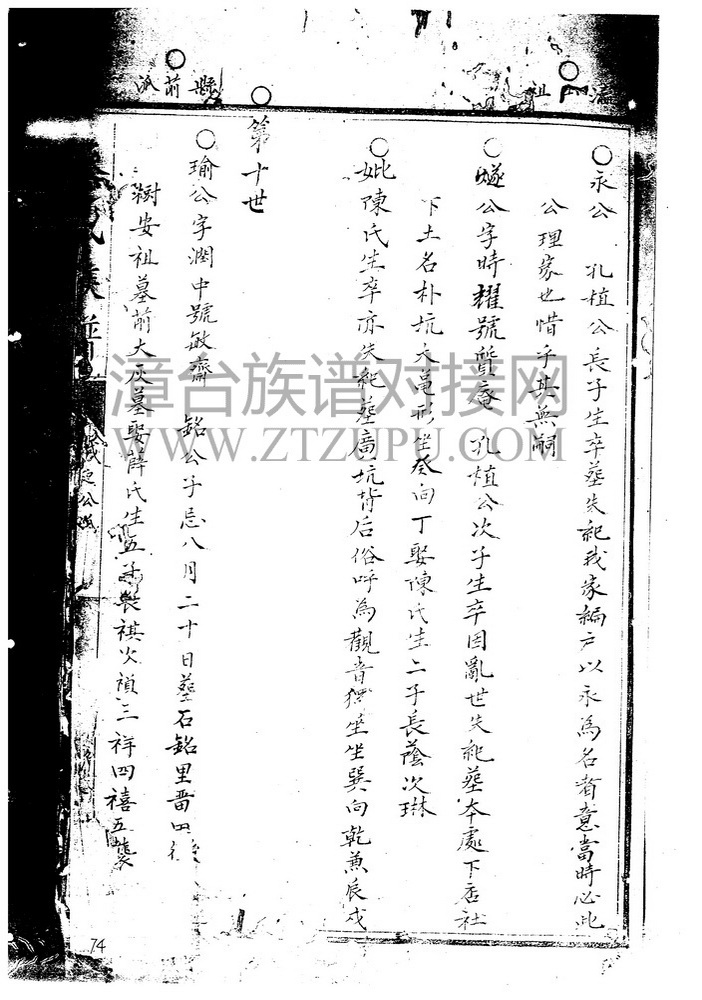 祖
縣前派
永公 孔植公長子生卒葬失紀我家編戶以永為名者意當時必此
公理家也惜乎其無嗣
燧公字時耀號質庵 孔植公次子生卒因亂世失紀葬本處下店社
下土名朴坑大黽形坐癸向丁娶陳氏生二子長蔭次琳
妣陳氏生卒亦失紀葬廣坑背后俗呼為觀音獨坐坐巽向乾兼辰戌
第十世
瑜公字潤中號敏齋 銘公子忌八月二十日葬石銘里晋四
樹安祖墓前大灰墓娶薛氏生五子長祺次禎三祥四禧五
漳台族谱对接网
WWW.ZTZUPU.COM
74